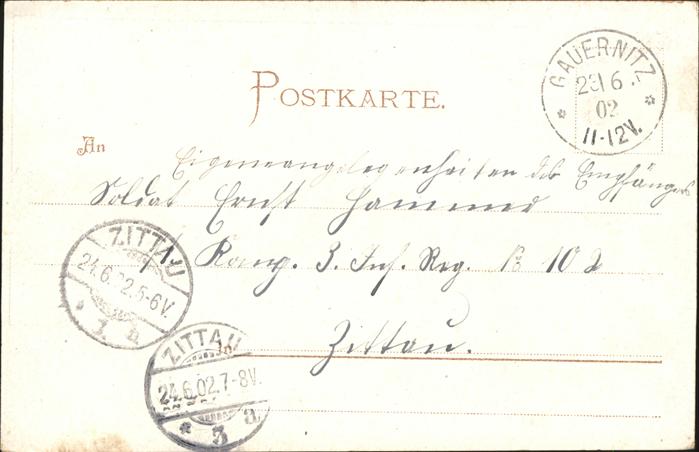 POSTKARTE.
GAUERNITZ
23 6.
02
11-12V.
An
Eigene Angelegenheiten des Empfängers
Soldat Ernst Hammer
ZITTAU
24.6.02.5-6V.
* 3. a.
1 Komp. 3. Inf. Reg. № 102
Zittau.
ZITTAU
24.6.02.7-8V.
* 3 a.